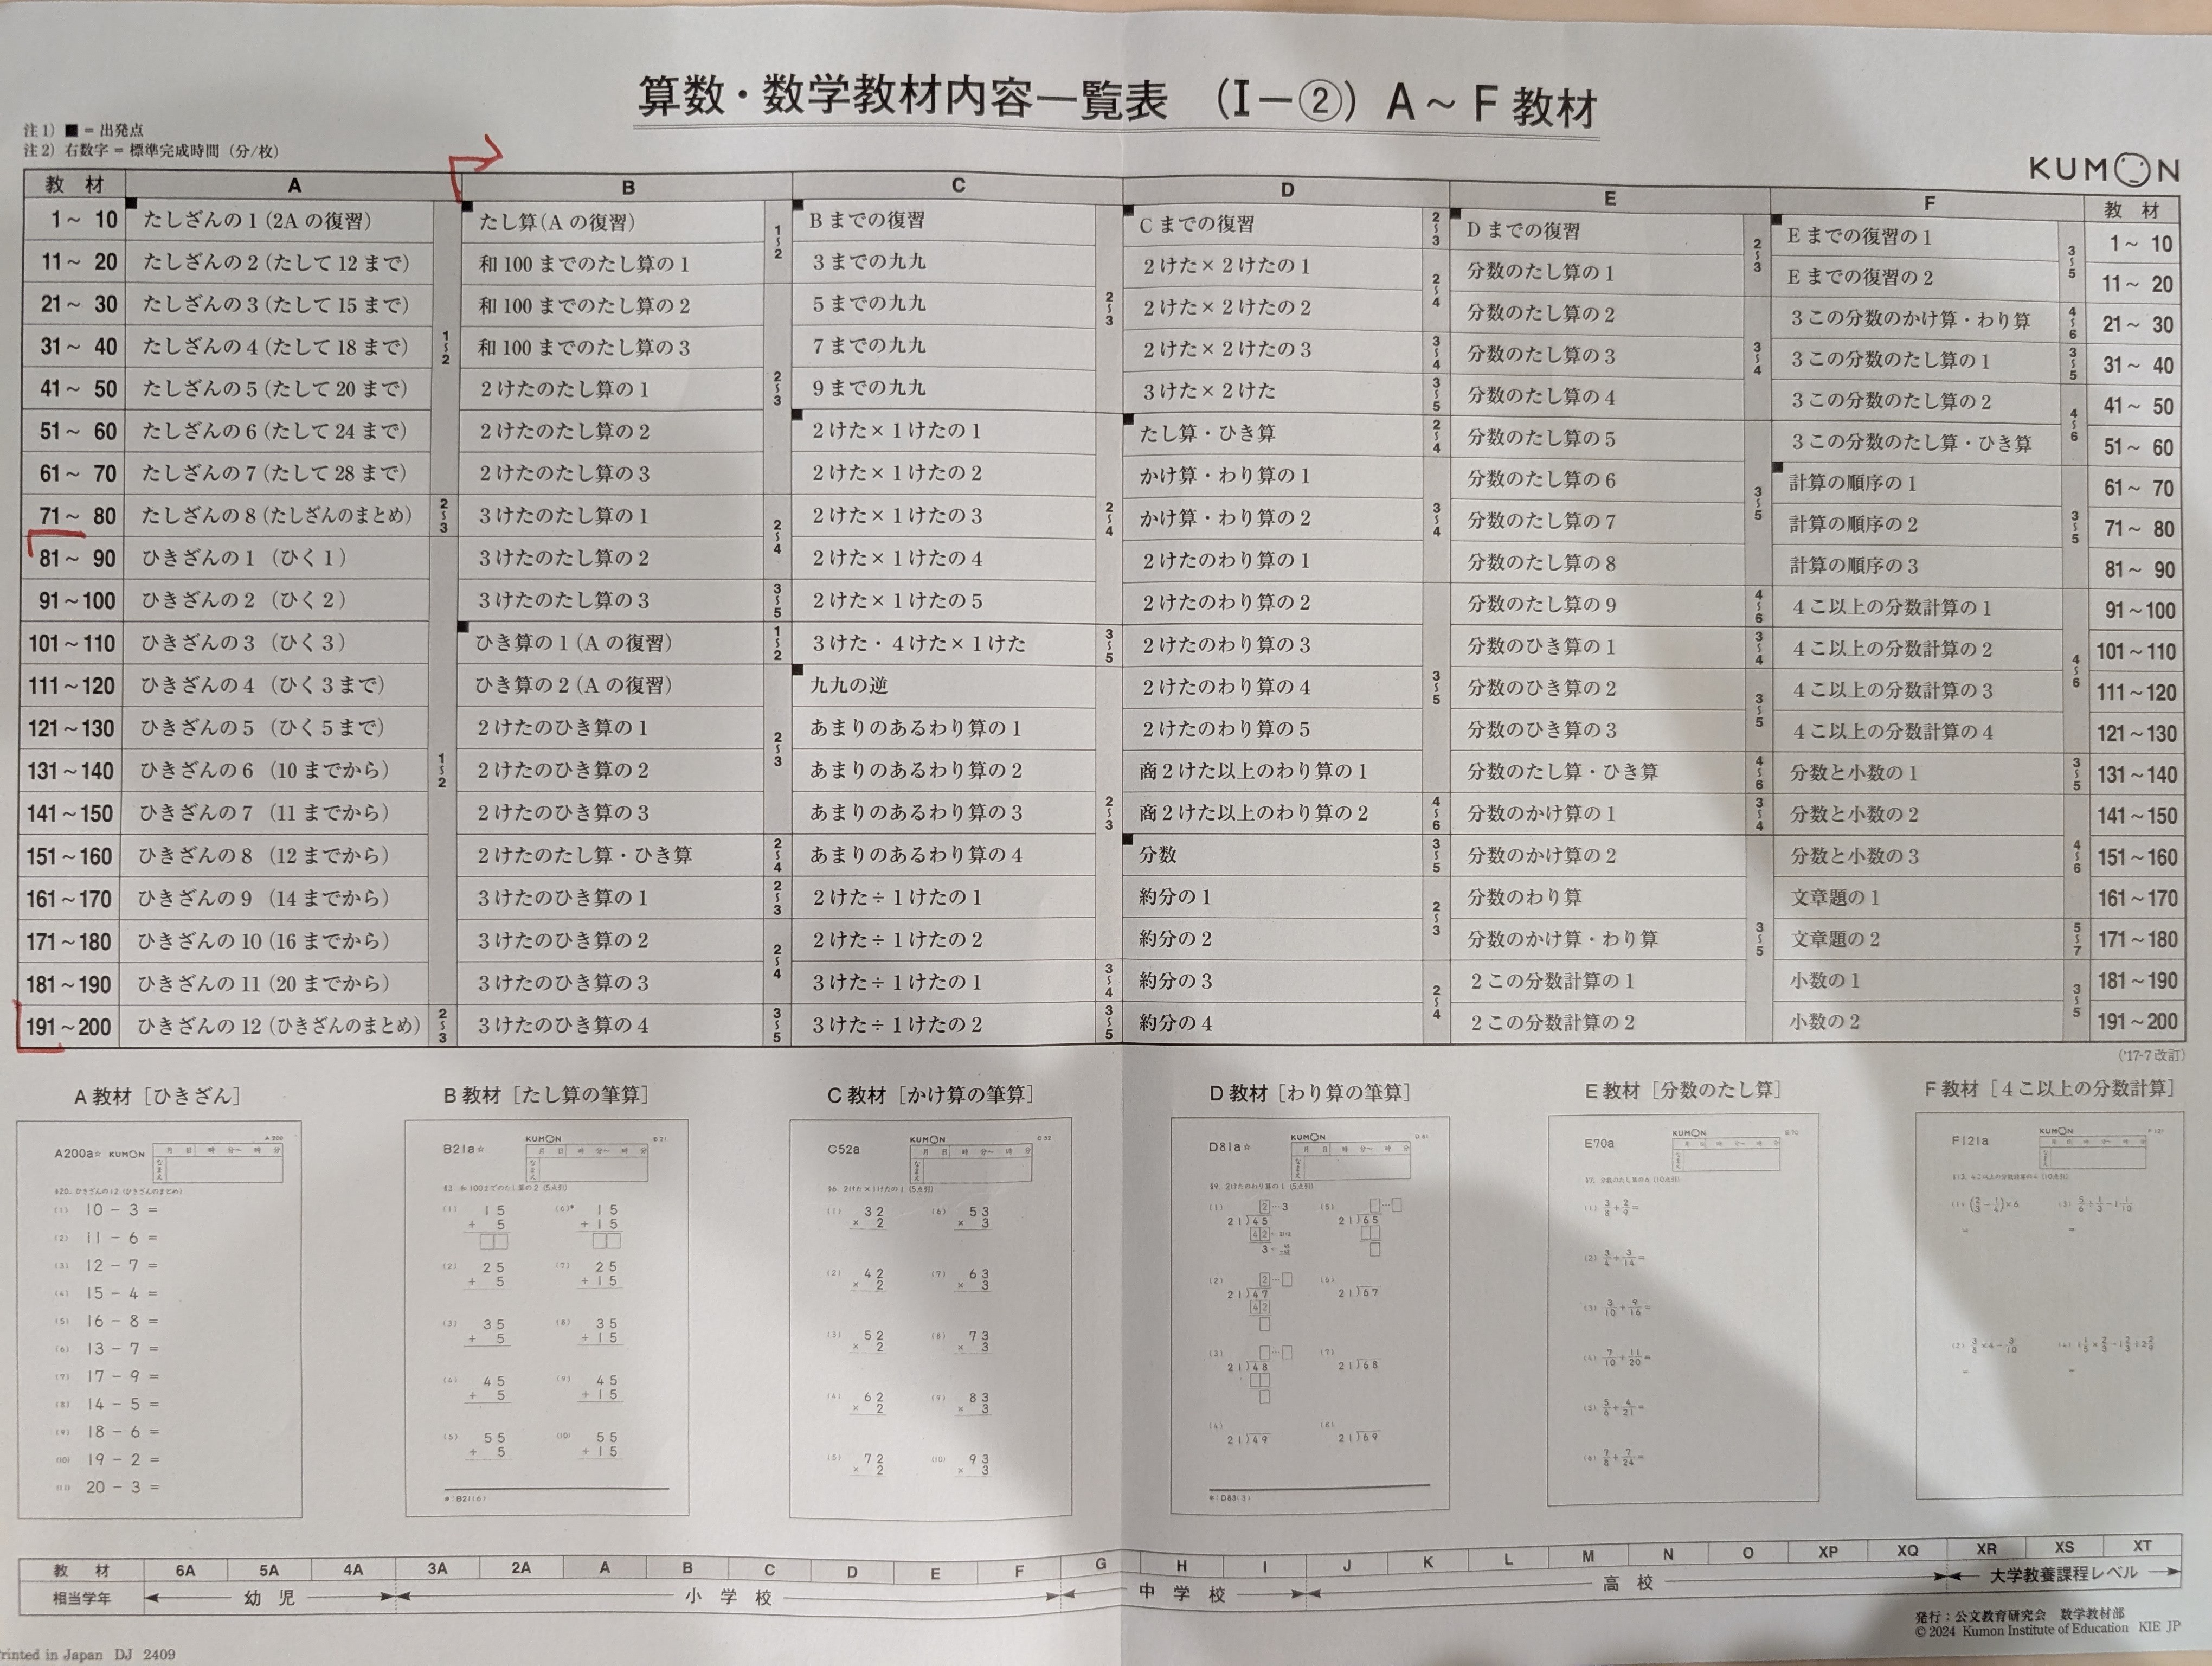 算数・数学教材内容一覧表 (I－②) A～F教材
注1) ■ = 出発点
注2) 右数字 = 標準完成時間 (分/枚)
KUMON
教 材 A B C D E F 教 材
1～ 10 たしざんの1 (2Aの復習) たし算(Aの復習) 1～2 Bまでの復習 Cまでの復習 2～3 Dまでの復習 2～3 Eまでの復習の1 3～5 1～ 10
11～ 20 たしざんの2 (たして12まで) 和100までのたし算の1 3までの九九 2けた×2けたの1 2～4 分数のたし算の1 Eまでの復習の2 11～ 20
21～ 30 たしざんの3 (たして15まで) 和100までのたし算の2 5までの九九 2～3 2けた×2けたの2 分数のたし算の2 3この分数のかけ算・わり算 4～6 21～ 30
31～ 40 たしざんの4 (たして18まで) 1～2 和100までのたし算の3 7までの九九 2けた×2けたの3 3～4 分数のたし算の3 3～4 3この分数のたし算の1 3～5 31～ 40
41～ 50 たしざんの5 (たして20まで) 2けたのたし算の1 2～3 9までの九九 3けた×2けた 3～5 分数のたし算の4 3この分数のたし算の2 4～6 41～ 50
51～ 60 たしざんの6 (たして24まで) 2けたのたし算の2 2けた×1けたの1 たし算・ひき算 2～4 分数のたし算の5 3この分数のたし算・ひき算 51～ 60
61～ 70 たしざんの7 (たして28まで) 2けたのたし算の3 2けた×1けたの2 かけ算・わり算の1 分数のたし算の6 3～5 計算の順序の1 61～ 70
71～ 80 たしざんの8 (たしざんのまとめ) 2～3 3けたのたし算の1 2～4 2けた×1けたの3 2～4 かけ算・わり算の2 3～4 分数のたし算の7 計算の順序の2 3～5 71～ 80
81～ 90 ひきざんの1 (ひく1) 3けたのたし算の2 2けた×1けたの4 2けたのわり算の1 分数のたし算の8 計算の順序の3 81～ 90
91～100 ひきざんの2 (ひく2) 3けたのたし算の3 3～5 2けた×1けたの5 2けたのわり算の2 分数のたし算の9 4～6 4こ以上の分数計算の1 91～100
101～110 ひきざんの3 (ひく3) ひき算の1 (Aの復習) 1～2 3けた・4けた×1けた 3～5 2けたのわり算の3 分数のひき算の1 3～4 4こ以上の分数計算の2 4～6 101～110
111～120 ひきざんの4 (ひく3まで) ひき算の2 (Aの復習) 九九の逆 2けたのわり算の4 3～5 分数のひき算の2 3～5 4こ以上の分数計算の3 111～120
121～130 ひきざんの5 (ひく5まで) 2けたのひき算の1 2～3 あまりのあるわり算の1 2けたのわり算の5 分数のひき算の3 4こ以上の分数計算の4 121～130
131～140 ひきざんの6 (10までから) 1～2 2けたのひき算の2 あまりのあるわり算の2 商2けた以上のわり算の1 分数のたし算・ひき算 4～6 分数と小数の1 3～5 131～140
141～150 ひきざんの7 (11までから) 2けたのひき算の3 あまりのあるわり算の3 2～3 商2けた以上のわり算の2 4～6 分数のかけ算の1 3～4 分数と小数の2 141～150
151～160 ひきざんの8 (12までから) 2けたのたし算・ひき算 2～4 あまりのあるわり算の4 分数 3～5 分数のかけ算の2 分数と小数の3 4～6 151～160
161～170 ひきざんの9 (14までから) 3けたのひき算の1 2～3 2けた÷1けたの1 約分の1 2～3 分数のわり算 文章題の1 161～170
171～180 ひきざんの10 (16までから) 3けたのひき算の2 2～4 2けた÷1けたの2 約分の2 分数のかけ算・わり算 3～5 文章題の2 5～7 171～180
181～190 ひきざんの11 (20までから) 3けたのひき算の3 3けた÷1けたの1 3～4 約分の3 2～4 2この分数計算の1 小数の1 3～5 181～190
191～200 ひきざんの12 (ひきざんのまとめ) 2～3 3けたのひき算の4 3～5 3けた÷1けたの2 3～5 約分の4 2この分数計算の2 小数の2 191～200
('17-7改訂)
A教材 [ひきざん] B教材 [たし算の筆算] C教材 [かけ算の筆算] D教材 [わり算の筆算] E教材 [分数のたし算] F教材 [4こ以上の分数計算]
A200a☆ KUMON 月 日 時 分～ 時 分
A200
なまえ
§20. ひきざんの12 (ひきざんのまとめ)
(1) 10 − 3 =
(2) 11 − 6 =
(3) 12 − 7 =
(4) 15 − 4 =
(5) 16 − 8 =
(6) 13 − 7 =
(7) 17 − 9 =
(8) 14 − 5 =
(9) 18 − 6 =
(10) 19 − 2 =
(11) 20 − 3 =
B21a☆ KUMON 月 日 時 分～ 時 分
B21
なまえ
§3. 和100までのたし算の2 (5点引)
(1) 15 + 5 (6)* 15 + 15
(2) 25 + 5 (7) 25 + 15
(3) 35 + 5 (8) 35 + 15
(4) 45 + 5 (9) 45 + 15
(5) 55 + 5 (10) 55 + 15
*：B21(6)
C52a KUMON 月 日 時 分～ 時 分
C52
なまえ
§6. 2けた×1けたの1 (5点引)
(1) 32 × 2 (6) 53 × 3
(2) 42 × 2 (7) 63 × 3
(3) 52 × 2 (8) 73 × 3
(4) 62 × 2 (9) 83 × 3
(5) 72 × 2 (10) 93 × 3
D81a☆ KUMON 月 日 時 分～ 時 分
D81
なまえ
§9. 2けたのわり算の1 (5点引)
(1) 2…3 21)45 42 3 (5) … 21)65
(2) 2… 21)47 42 (6) 21)67
(3) … 21)48 (7) 21)68
(4) 21)49 (8) 21)69
*：D83(3)
E70a KUMON
E70
§7. 分数のたし算の6 (10点引)
(1) 3/8 + 2/9 =
(2) 3/4 + 3/14 =
(3) 3/10 + 9/16 =
(4) 7/10 + 11/20 =
(5) 5/6 + 4/21 =
(6) 7/8 + 7/24 =
F121a KUMON
F121
§13. 4こ以上の分数計算の4 (10点引)
(1) (2/3 − 1/4) × 6 (3) 5/6 ÷ 1/3 − 1 1/10
= =
(2) 3/8 × 4 − 3/10 (4) 1 1/5 × 2/3 − 1 2/3 ÷ 2 2/9
= =
教 材 6A 5A 4A 3A 2A A B C D E F G H I J K L M N O XP XQ XR XS XT
相当学年 幼 児 小 学 校 中 学 校 高 校 大学教養課程レベル
発行：公文教育研究会 数学教材部
© 2024 Kumon Institute of Education KIE JP
rinted in Japan DJ 2409